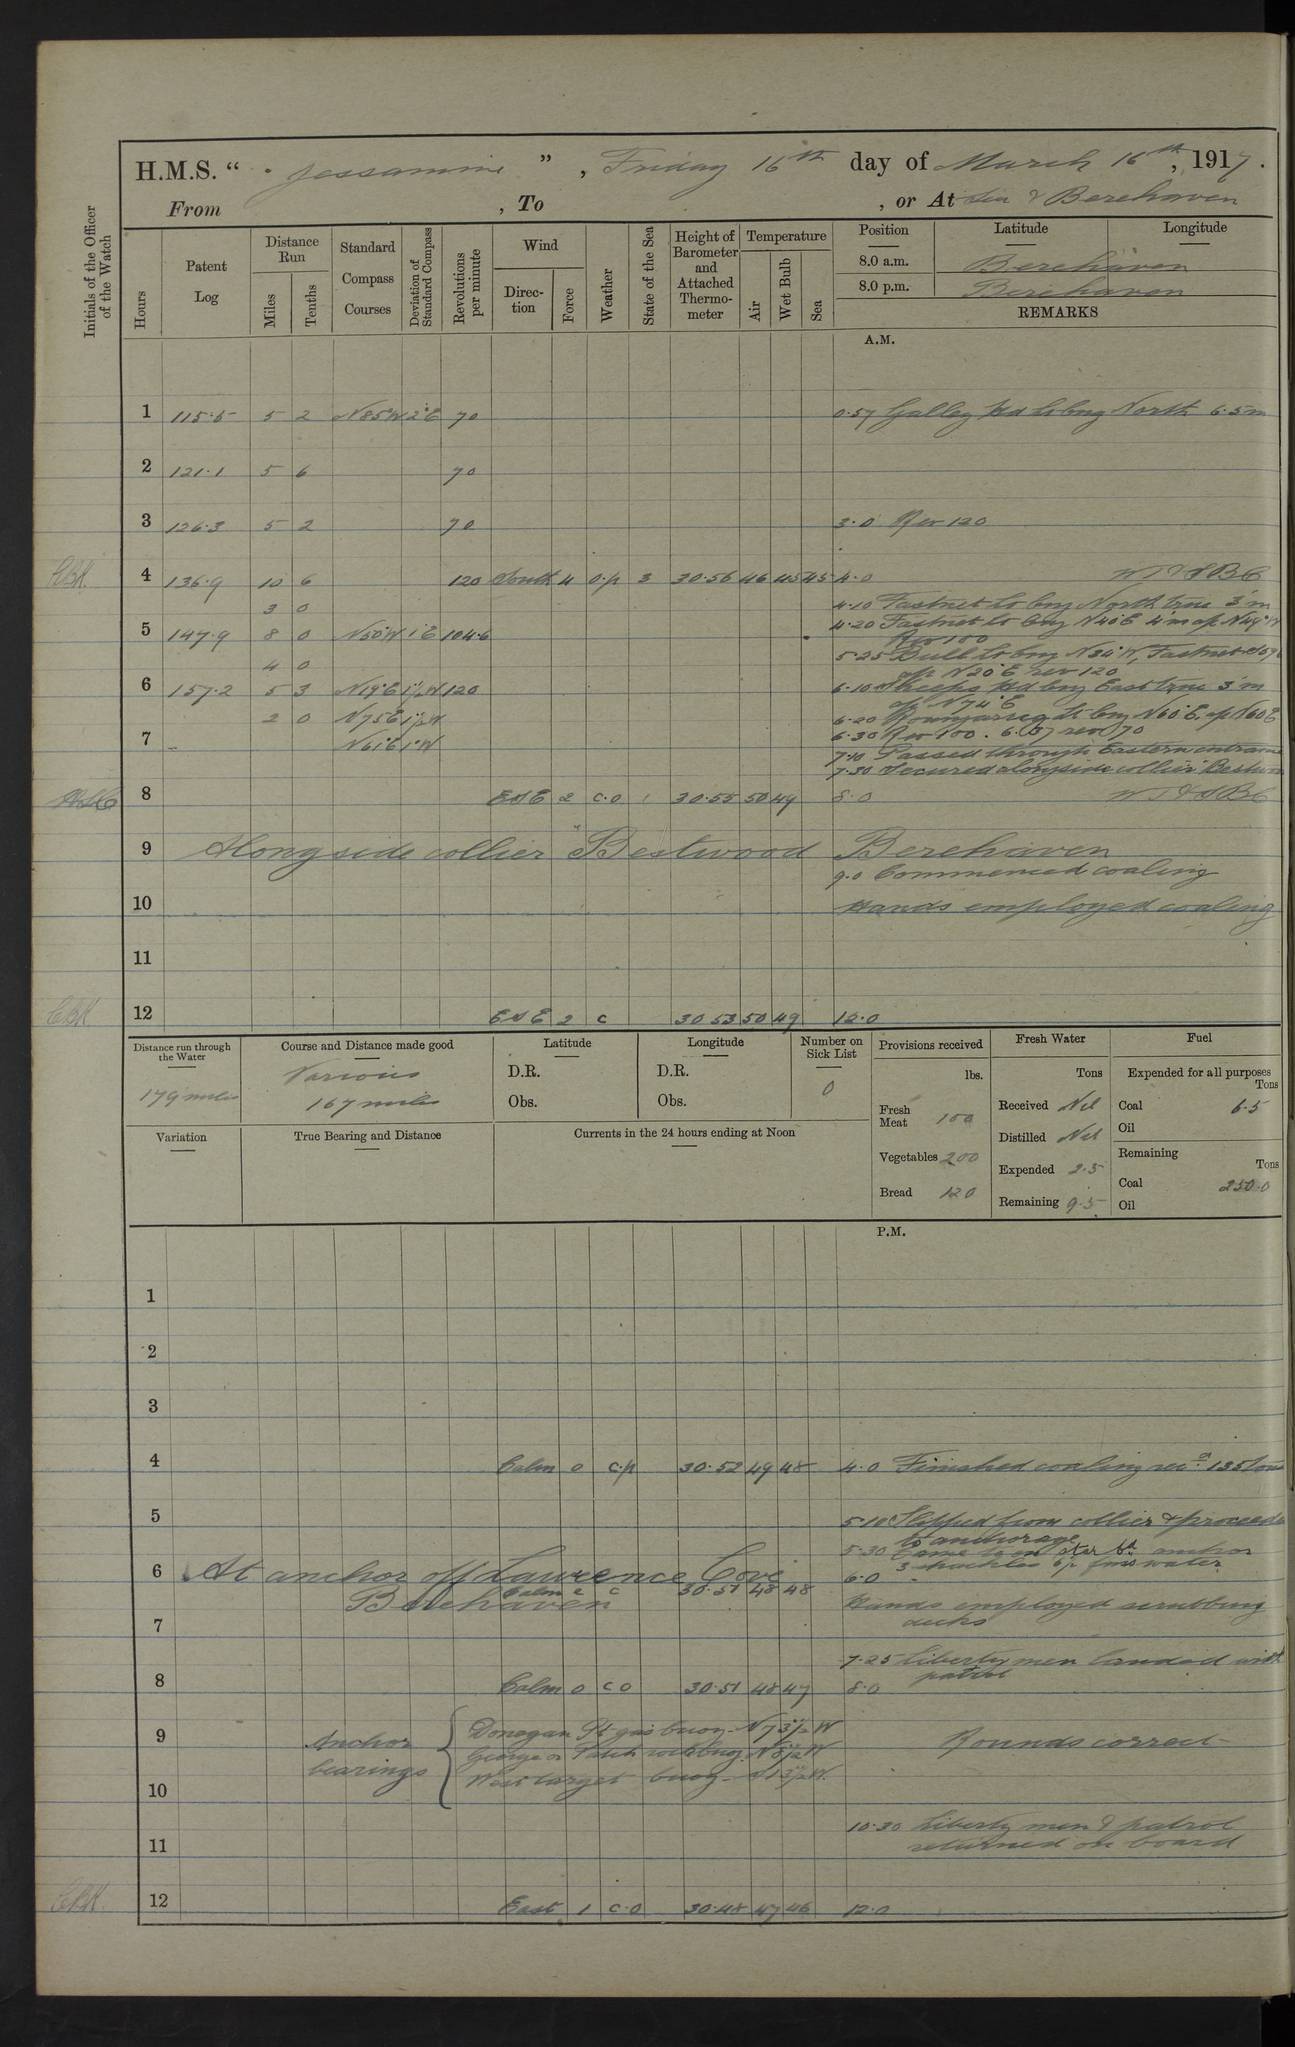 H.M.S. " Jessamine ", Friday 16th day of March 16th, 1917.
From , To , or At Sea & Berehaven
Initials of the Officer of the Watch
Hours
Patent Log
Distance Run
Miles
Tenths
Standard Compass Courses
Deviation of Standard Compass
Revolutions per minute
Wind
Direction
Force
Weather
State of the Sea
Height of Barometer and Attached Thermometer
Temperature
Air
Wet Bulb
Sea
Position Latitude Longitude
8.0 a.m. Berehaven
8.0 p.m. Berehaven
REMARKS
A.M.
1 115.5 5 2 N85°W 2°E 70 0.57 Galley Hd Lt brg North 6.5m
2 121.1 5 6 70
3 126.3 5 2 70 3.0 Rev 120
4 136.9 10 6 120 South 4 o.p 3 30.56 46 45 45 4.0
3 0 4.10 Fastnet lt brg North true 3'm
5 147.9 8 0 N50°W 1°E 104.6 4.20 Fastnet lt brg N40°E 4'm a/c N49°W
Rev 100
4 0 5.25 Bull lt brg N34°W, Fastnet
a/c N20°E rev 120
6 157.2 5 3 N19°E 1½°W 120 6.10 Sheeps Hd brg East true 3'm
a/c N74°E
2 0 N75E 1½°W 6.20 Roancarrig lt brg N60°E, a/c N60E
7 N61°E 1°W 6.30 Rev 100. 6.37 rev 70
7.10 Passed through Eastern entrance
7.30 Secured alongside collier Bestwood
8 ESE 2 c.o 1 30.55 50 49 8.0
9 Alongside collier "Bestwood Berehaven
9.0 Commenced coaling
10 Hands employed coaling
11
12 ESE 2 c 30.53 50 49 12.0
Distance run through the Water
179 miles
Course and Distance made good
Various
167 miles
Latitude
D.R.
Obs.
Longitude
D.R.
Obs.
Number on Sick List
0
Provisions received
lbs.
Fresh Meat 100
Vegetables 200
Bread 120
Fresh Water
Tons
Received Nil
Distilled Nil
Expended 2.5
Remaining 9.5
Fuel
Expended for all purposes
Tons
Coal 6.5
Oil
Remaining
Tons
Coal 250.0
Oil
Variation
True Bearing and Distance
Currents in the 24 hours ending at Noon
P.M.
1
2
3
4 Calm 0 c.p 30.52 49 48 4.0 Finished coaling recd 135 tons
5 5.10 Slipped from collier & proceeded
to anchorage
5.30 Came to on star bd anchor
3 shackles 6½ fms water
6 At anchor off Lawrence Cove 6.0
Calm c 30.51 48 48
Berehaven Hands employed scrubbing
7 decks
7.25 Liberty men landed with
patrol
8 Calm 0 c o 30.51 48 47 8.0
9 Anchor bearings { Donegan Pt gas buoy - N73½°W Rounds correct
George or Patch rock buoy. N8½°W
West target buoy - S13½W.
10
10.30 Liberty men & patrol
11 returned on board
12 East 1 c.o 30.48 47 46 12.0